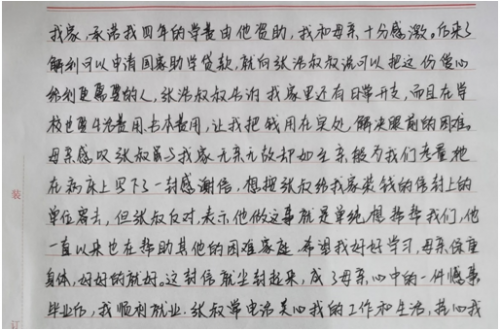 我家，承诺我四年的学费由他资助，我和母亲十分感激。后来了
解到可以申请国家助学贷款，就向张浩叔叔说可以把这份爱心
给到更需要的人，张浩叔叔告诉我家里还有日常开支，而且在学
校也要生活费用、书本费用，让我把钱用在实处，解决眼前的困难。
母亲感叹张叔与我家无亲无故却如至亲般为我们考量，她
在病床上写下了一封感谢信，想按张叔给我家装钱的信封上的
单位寄去，但张叔反对，表示他做这事就是单纯想帮帮我们，他
一直以来也在帮助其他的困难家庭。希望我好好学习，母亲保重
身体，好好的就好。这封信就尘封起来，成了母亲心中的一件憾事
毕业后，我顺利就业，张叔常电话关心我的工作和生活，我心我
装
订